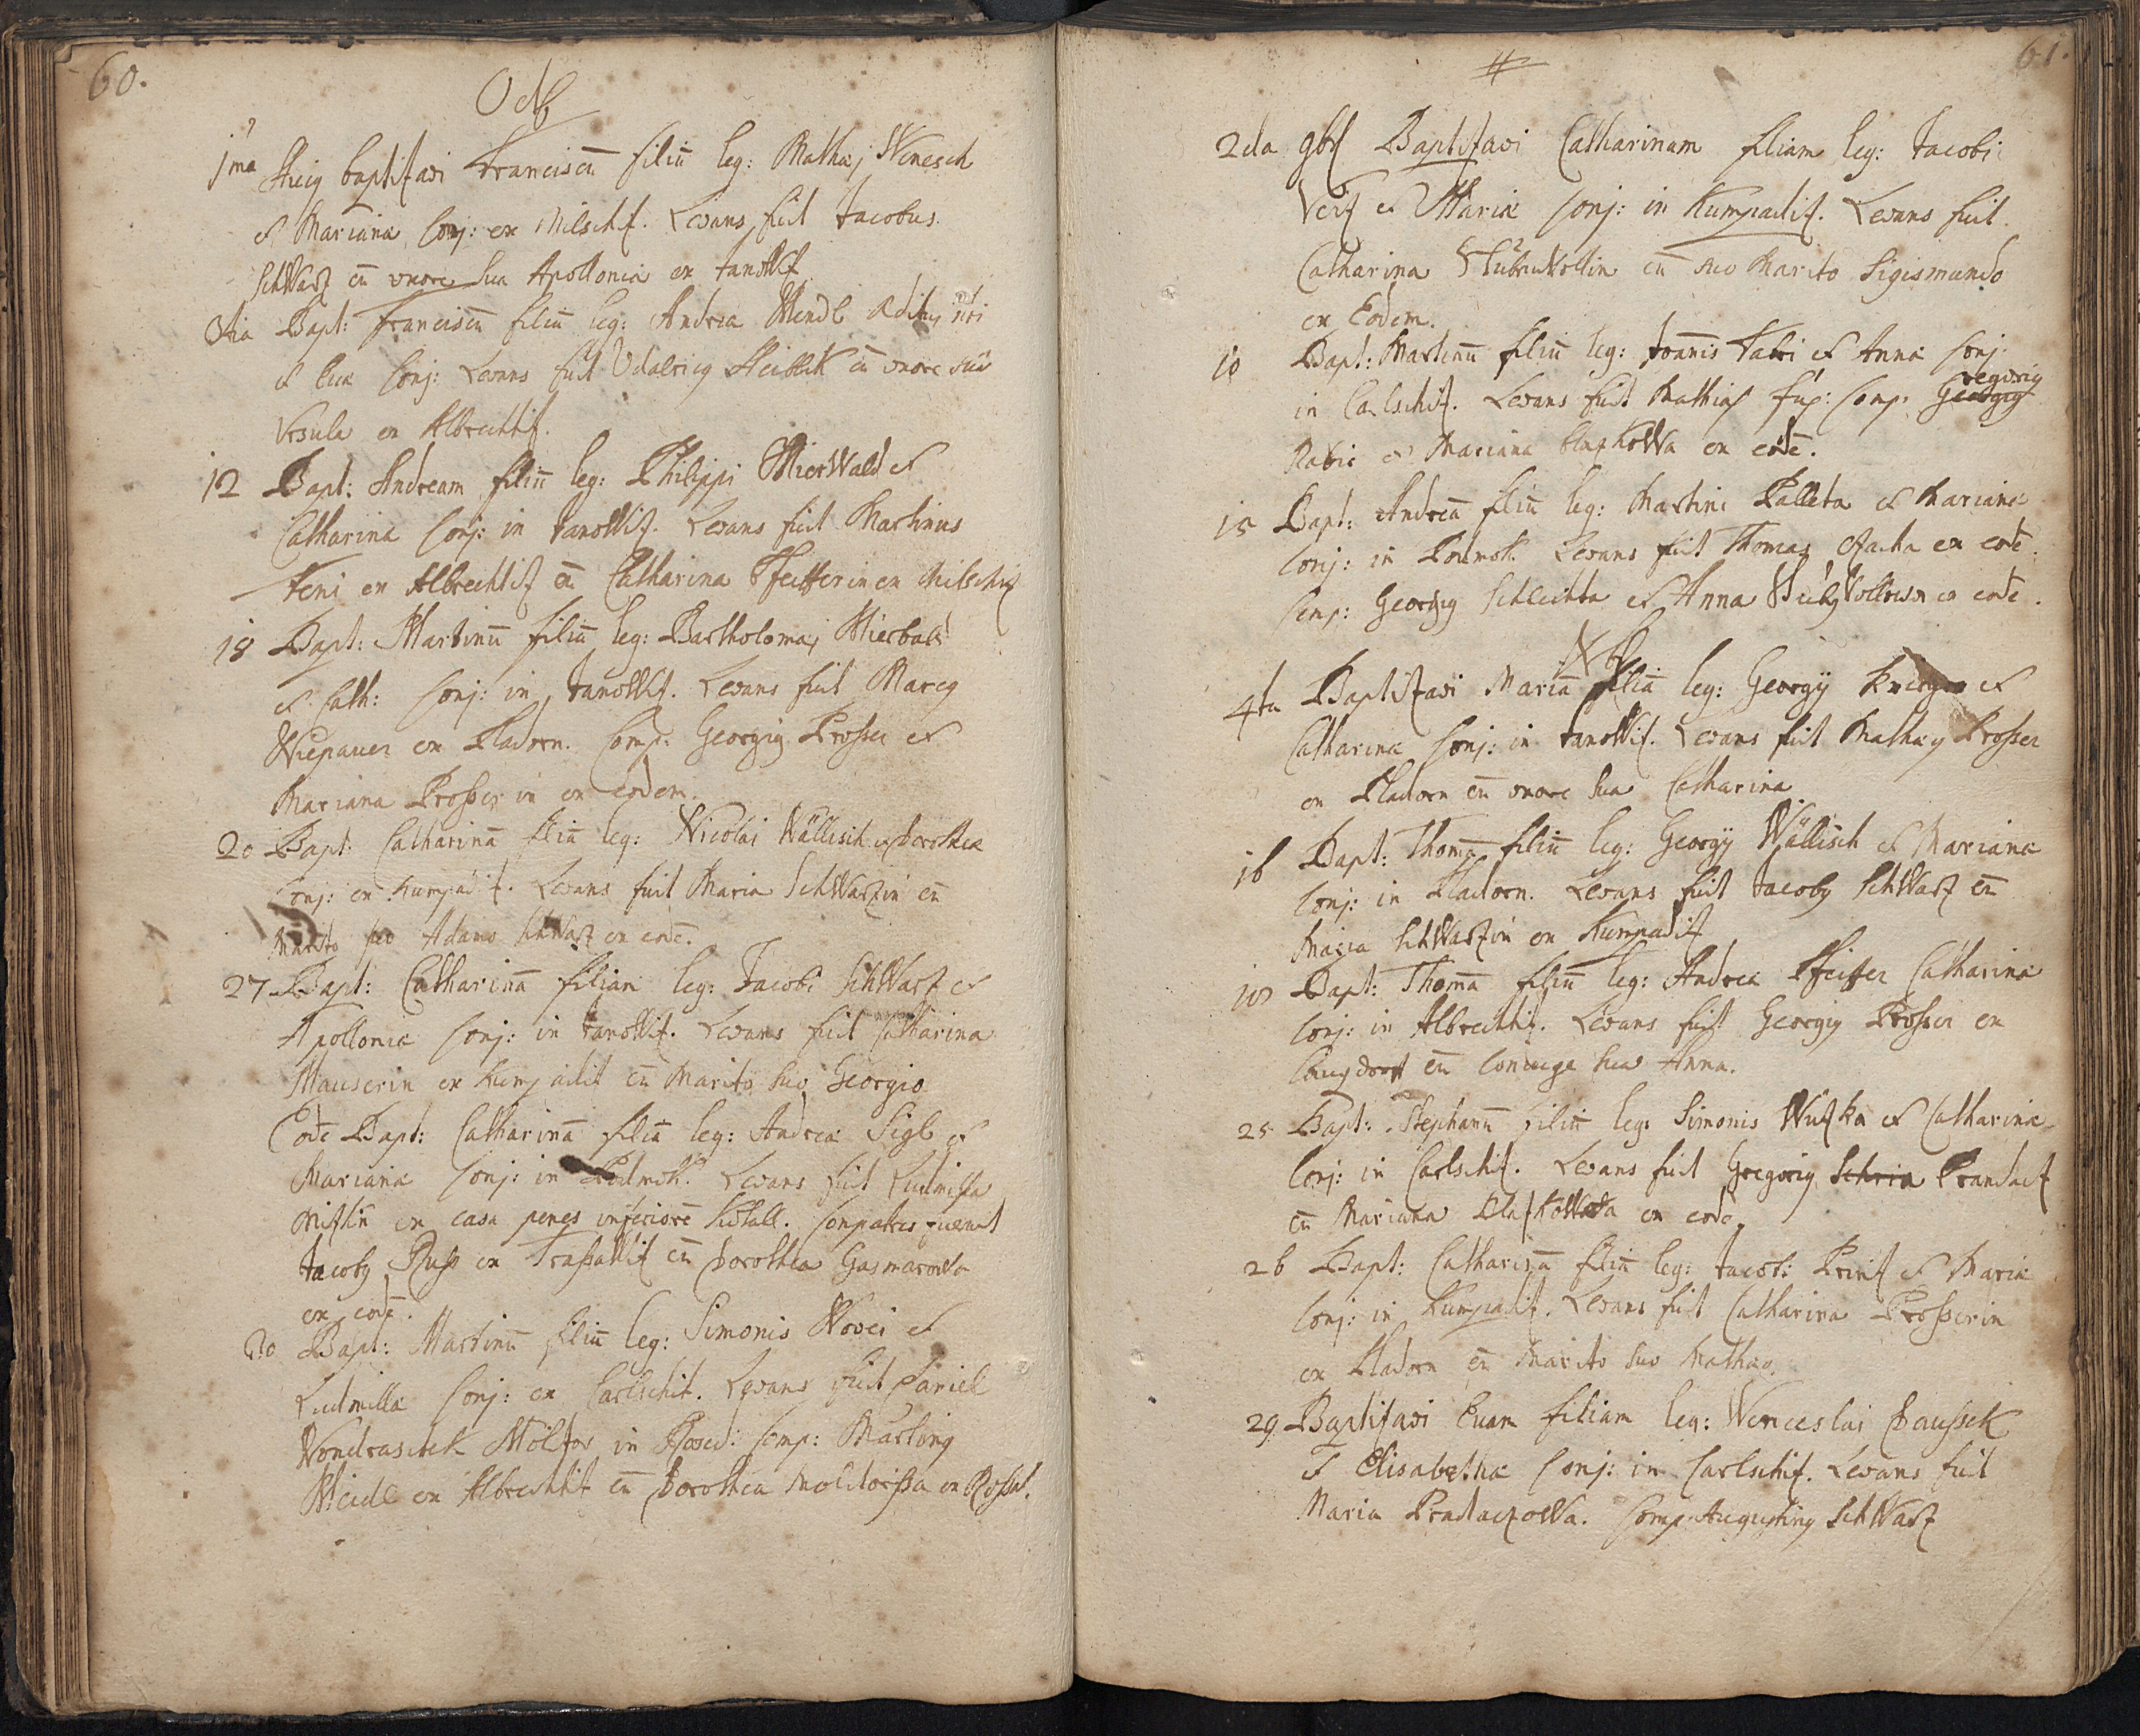 60.
Octb
1ma Huig baptisavi Franciscū filiū leg: Mathaj Wenesch
et Mariana Conj: ex Milschit. Levans fuit Jacobus
Schwarz cū uxore sua Apollonia ex Janowit
3tia Bapt: Franciscū filiū leg: Andrea Wendl Aditui nri
et Eva Conj: Levans fuit Udalricg Heiblik cū uxore sua
Ursula ex Albrechtit.
12 Bapt: Andream filiū leg: Philippi Mierwald et
Catharina Conj: in Janowit. Levans fuit Martinus
Feni ex Albrechtit cū Catharina Pfeifferin ex Milschit
18 Bapt: Martinū filiū leg: Bartholomaj Mierbald
et Cath: Conj: in Janowit. Levans fuit Marcg
Wiepauer ex Pladorn. Comp: Georgig Prosser et
Mariana Prosserin ex eodem.
20 Bapt: Catharinā filiā leg: Nicolai Wällisch et Dorothea
Conj: ex Kumpadit. Levans fuit Maria Schwarzin cū
Marito suo Adamo Schwarz ex eodē.
27 Bapt: Catharinā filiam leg: Jacobi Schwarz et
Apollonia Conj: in Janowit. Levans fuit Catharina
Mauserin ex Kumpadit cū Marito suo Georgio
Eodē Bapt: Catharinā filiā leg: Andrea Sigl et
Mariana Conj: in Podmok. Levans fuit Ludmilla
ex casa penes inferiorē. Compatres fuerunt
Jacobg Russ ex cū Dorothea
ex eodē.
30 Bapt: Martinū filiū leg: Simonis Novei et
Ludmilla Conj: ex Carlschit. Levans fuit Daniel
Wondraschek Molitor in Rosed: Comp: Marting
Weidl ex Albrechtit cū Dorothea ex Rossed.
61.
2da 9br Baptisavi Catharinam filiam leg: Jacobi
Veit et Maria Conj: in Kumpadit. Levans fuit
Catharina cū suo Marito Sigismundo
ex Eodem.
10 Bapt: Martinū filiū leg: Joannis Fabri et Anna Conj:
in Carlschit. Levans fuit Mathias Comp: Georgig
regorig
et Mariana ex eodē.
15 Bapt: Andreā filiū leg: Martini Palleta et Mariana
Conj: in Podmok. Levans fuit Thomas ex eodē.
Comp: Georgig Schlechta et Anna ex eodē.
Xb
4ta Baptisavi Mariā filiā leg: Georgÿ et
Catharina Conj: in Janowit. Levans fuit Mathaig Prosser
ex Pladorn cū uxore sua Catharina
16 Bapt: Thomā filiū leg: Georgÿ Wällisch et Mariana
Conj: in Pladorn. Levans fuit Jacobg Schwarz cū
Maria Schwarzin ex Kumpadit
18 Bapt: Thomā filiū leg: Andrea Pfeiffer Catharina
Conj: in Albrechtit. Levans fuit Georgig Prosser ex
Langdorf cū Coniuge sua Anna.
25 Bapt: Stephanū filiū leg: Simonis Wutka et Catharina
Conj: in Carlschit. Levans fuit Gregorig Schria Prandact
cū Mariana ex eodē.
26 Bapt: Catharinā filiā leg: Jacobi Print et Maria
Conj: in Kumpadit. Levans fuit Catharina Prosserin
ex Pladorn cū Marito suo Mathaeo.
29. Baptisavi Evam filiam leg: Wenceslai Daussek
et Elisabetha Conj: in Carlschit. Levans fuit
Maria Pradaczowa. Comp: Augusting Schwarz